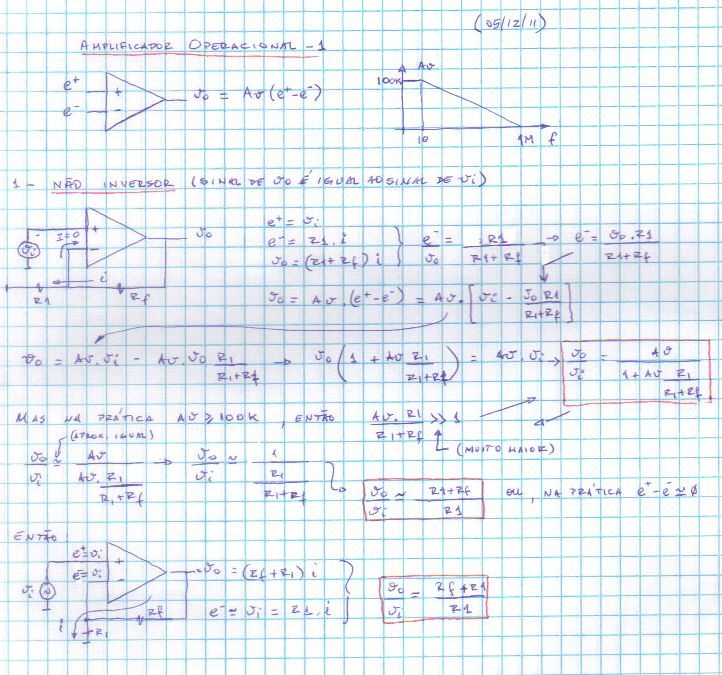 (05/12/11)
AMPLIFICADOR OPERACIONAL - 1
e+ + e- - vo = Av (e+ - e-)
Av 100K 10 1M f
1 - NÃO INVERSOR (SINAL DE vo É IGUAL AO SINAL DE vi)
vi I=0 + - vo R1 i Rf
e+ = vi
e- = R1 . i
vo = (R1 + Rf) i
e-/vo = R1/(R1+Rf) → e- = vo.R1/(R1+Rf)
vo = Av . (e+ - e-) = Av . [vi - vo R1/(R1+Rf)]
vo = Av.vi - Av.vo R1/(R1+Rf) → vo (1 + Av R1/(R1+Rf)) = Av.vi → vo/vi = Av/(1 + Av R1/(R1+Rf))
MAS NA PRÁTICA Av ≥ 100K , ENTÃO Av.R1/(R1+Rf) >> 1
(APROX. IGUAL)
(MUITO MAIOR)
vo/vi ≃ Av/(Av.R1/(R1+Rf)) → vo/vi ≃ 1/(R1/(R1+Rf))
vo/vi ≃ (R1+Rf)/R1 OU, NA PRÁTICA e+ - e- ≃ 0
ENTÃO:
vi e+=vi e-=vi + - Rf i R1
vo = (Rf + R1) i
e- ≃ vi = R1 . i
vo/vi = (Rf + R1)/R1